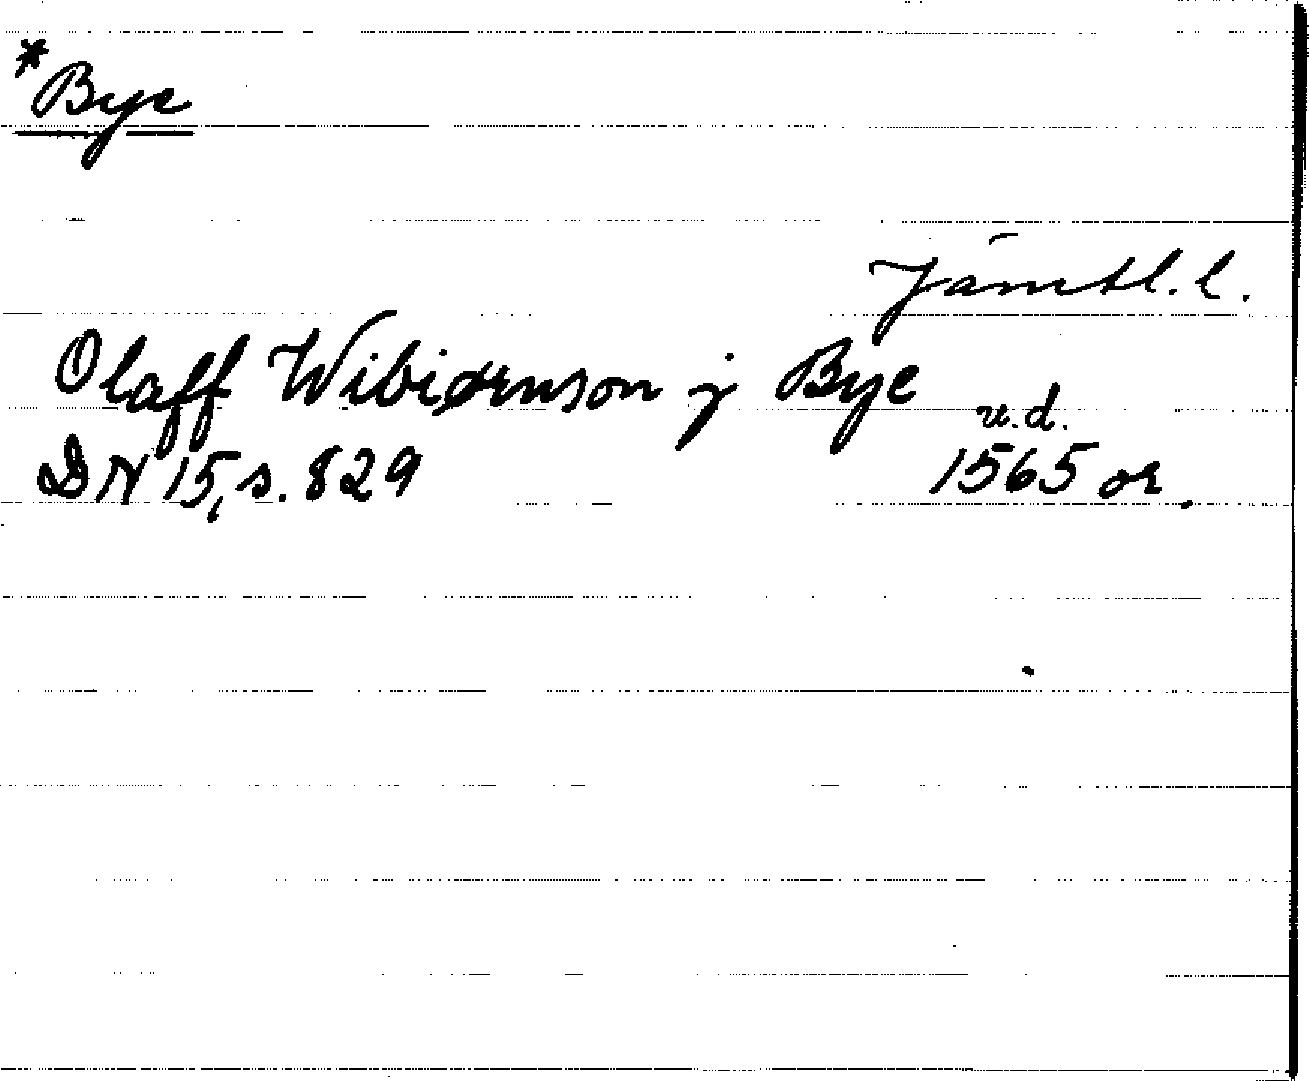 *Bye
Jämtl. l.
Olaff Wibiørnson j Bye
u.d.
DN 15, s. 829 1565 or.